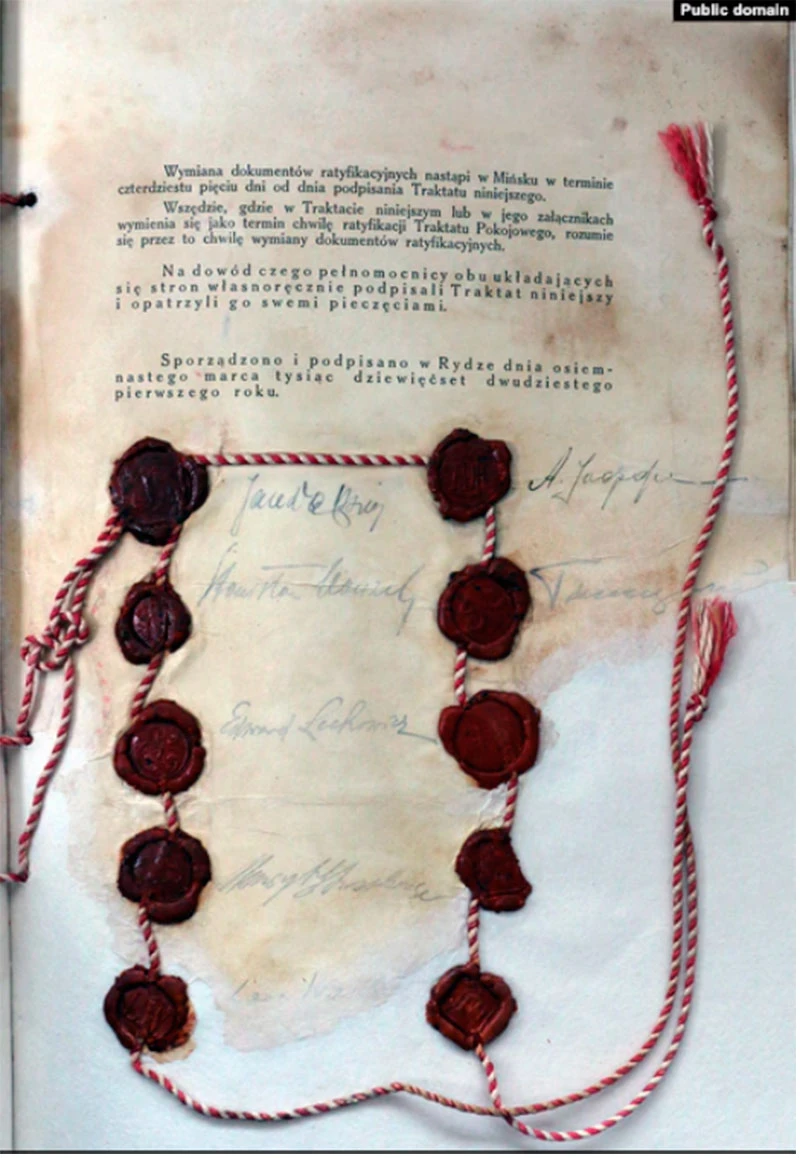 Public domain
Wymiana dokumentów ratyfikacyjnych nastąpi w Mińsku w terminie
czterdziestu pięciu dni od dnia podpisania Traktatu niniejszego.
Wszędzie, gdzie w Traktacie niniejszym lub w jego załącznikach
wymienia się jako termin chwilę ratyfikacji Traktatu Pokojowego, rozumie
się przez to chwilę wymiany dokumentów ratyfikacyjnych.
Na dowód czego pełnomocnicy obu układających
się stron własnoręcznie podpisali Traktat niniejszy
i opatrzyli go swemi pieczęciami.
Sporządzono i podpisano w Rydze dnia osiem-
nastego marca tysiąc dziewięćset dwudziestego
pierwszego roku.
Edward Lechowicz